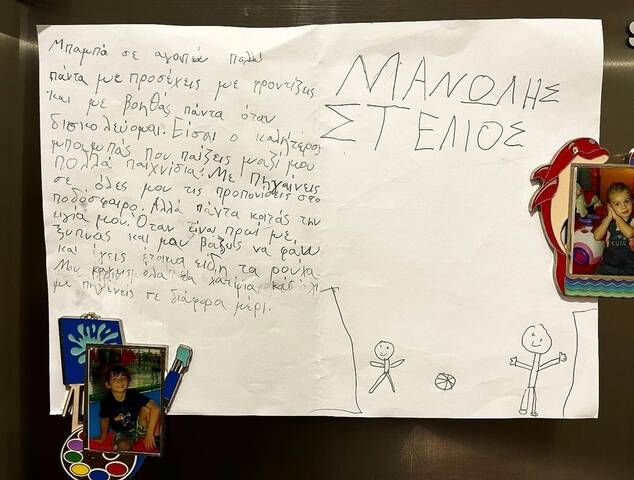 Μπαμπά σε αγαπάω πολύ
πάντα με προσέχεις με φροντίζεις
και με βοηθάς πάντα όταν
δισκολεύομαι. Είσαι ο καλήτερος
μπαμπάς που παίζεις μαζί μου
πολλά παιχνίδια. Με πηγαίνεις
σε όλες μου τις προπονίσεις στο
ποδόσφαιρο. Αλλά πάντα κοιτάς την
ειγία μου. Όταν είναι πρωί με
ξυπνάς και μου βάζεις να φάω
και έχεις έτοιμα είδη τα ρούχα
μου όλα τα χατίρια και
με πηγένεις σε διάφορα μέρι.
ΜΑΝΩΛΗΣ
ΣΤΕΛΙΟΣ